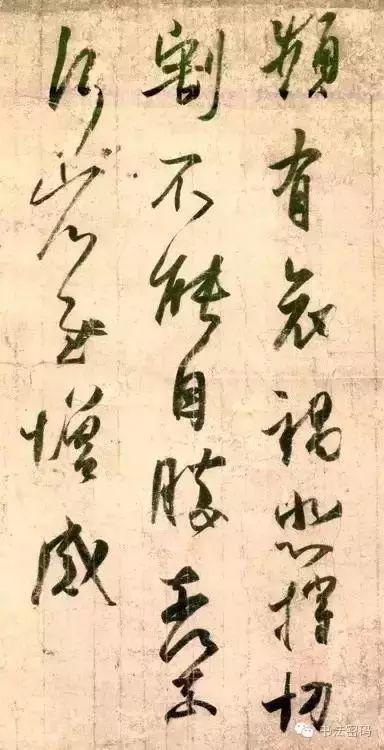 頻有哀禍悲摧切
割不能自勝奈何奈
何省慰增感
书法密码